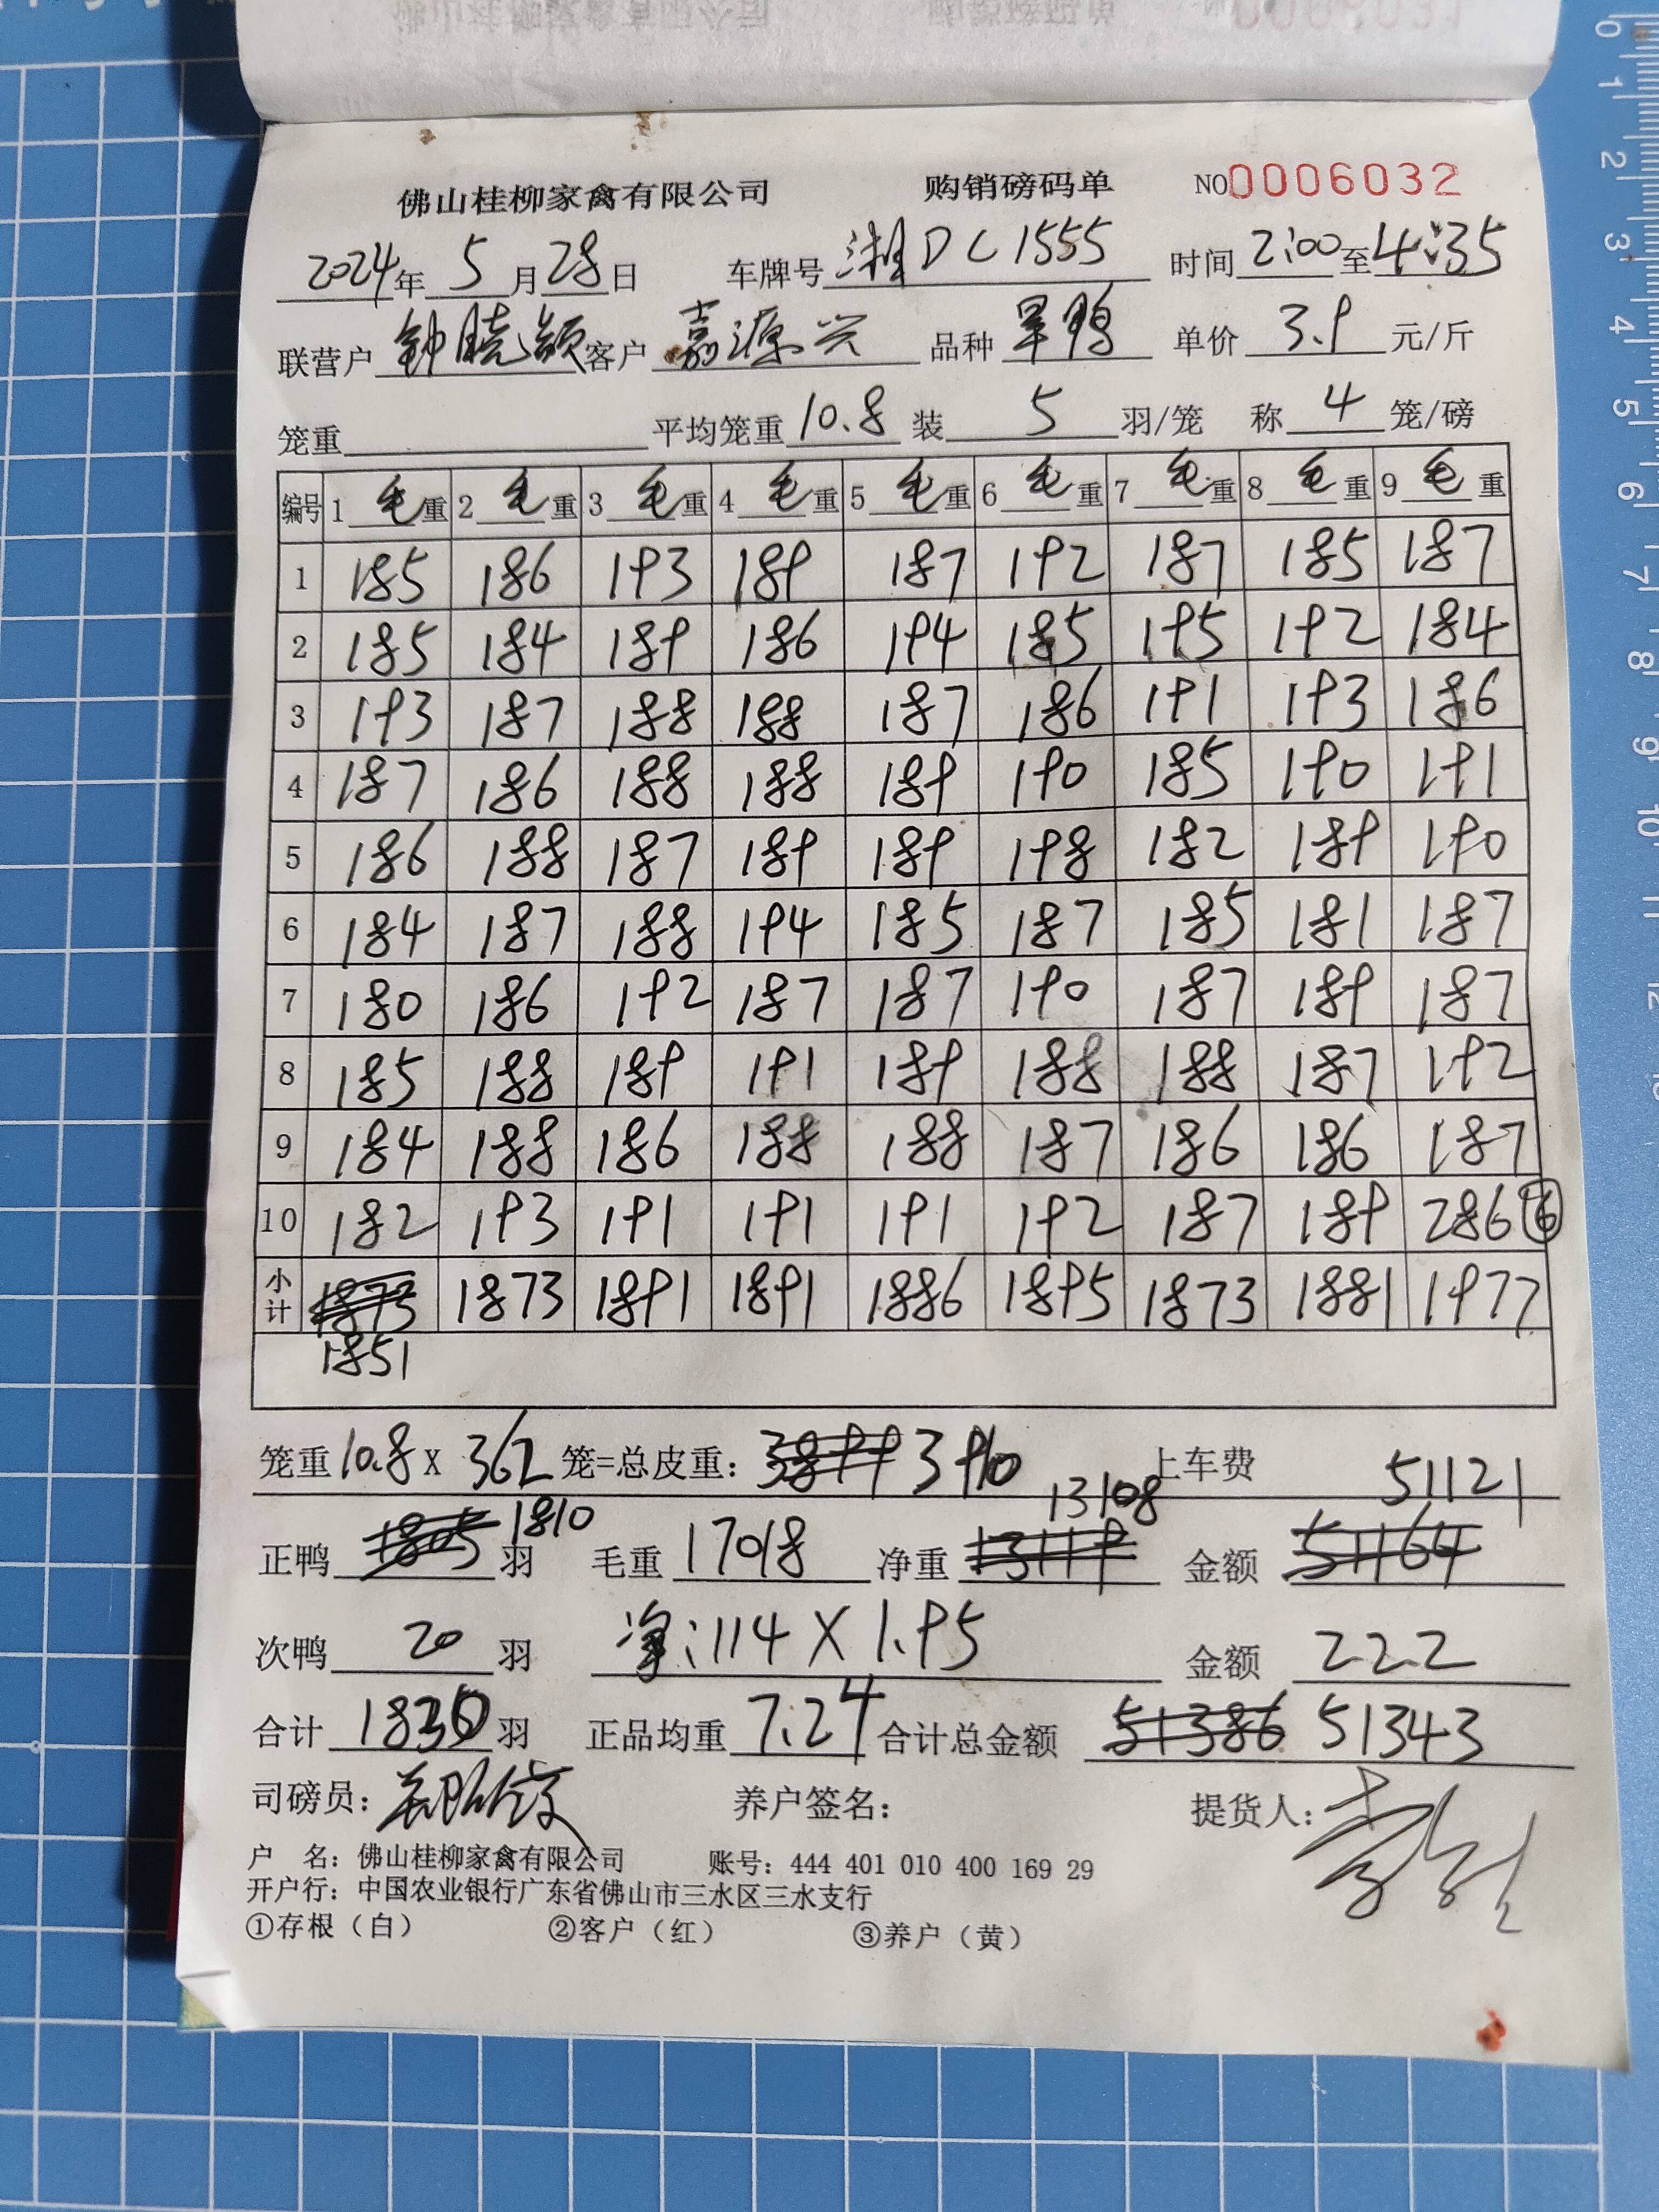 佛山桂柳家禽有限公司 购销磅码单 NO0006032
2024年5月28日 车牌号 湘DC1555 时间 2:00至4:35
联营户 钟晓颜 客户 嘉源兴 品种 旱鸭 单价 3.9 元/斤
笼重 平均笼重 10.8 装 5 羽/笼 称 4 笼/磅
编号 1毛重 2毛重 3毛重 4毛重 5毛重 6毛重 7毛重 8毛重 9毛重
1 185 186 193 189 187 192 187 185 187
2 185 184 189 186 194 185 195 192 184
3 193 187 188 188 187 186 191 193 186
4 187 186 188 188 189 190 185 190 191
5 186 188 187 189 189 198 182 189 190
6 184 187 188 194 185 187 185 181 187
7 180 186 192 187 187 190 187 189 187
8 185 188 189 191 189 188 188 187 192
9 184 188 186 188 188 187 186 186 187
10 182 193 191 191 191 192 187 189 286 ⑥
小计 1873 1873 1891 1891 1886 1895 1873 1881 1977
1851
笼重 10.8 X 362 笼=总皮重: 3899 3910 上车费
13108 51121
正鸭 1805 1810 羽 毛重 17018 净重 13119 金额 51164
次鸭 20 羽 净:114X1.95 金额 222
合计 1830 羽 正品均重 7.24 合计总金额 51386 51343
司磅员: 养户签名: 提货人:
户 名: 佛山桂柳家禽有限公司 账号: 444 401 010 400 169 29
开户行: 中国农业银行广东省佛山市三水区三水支行
①存根(白) ②客户(红) ③养户(黄)